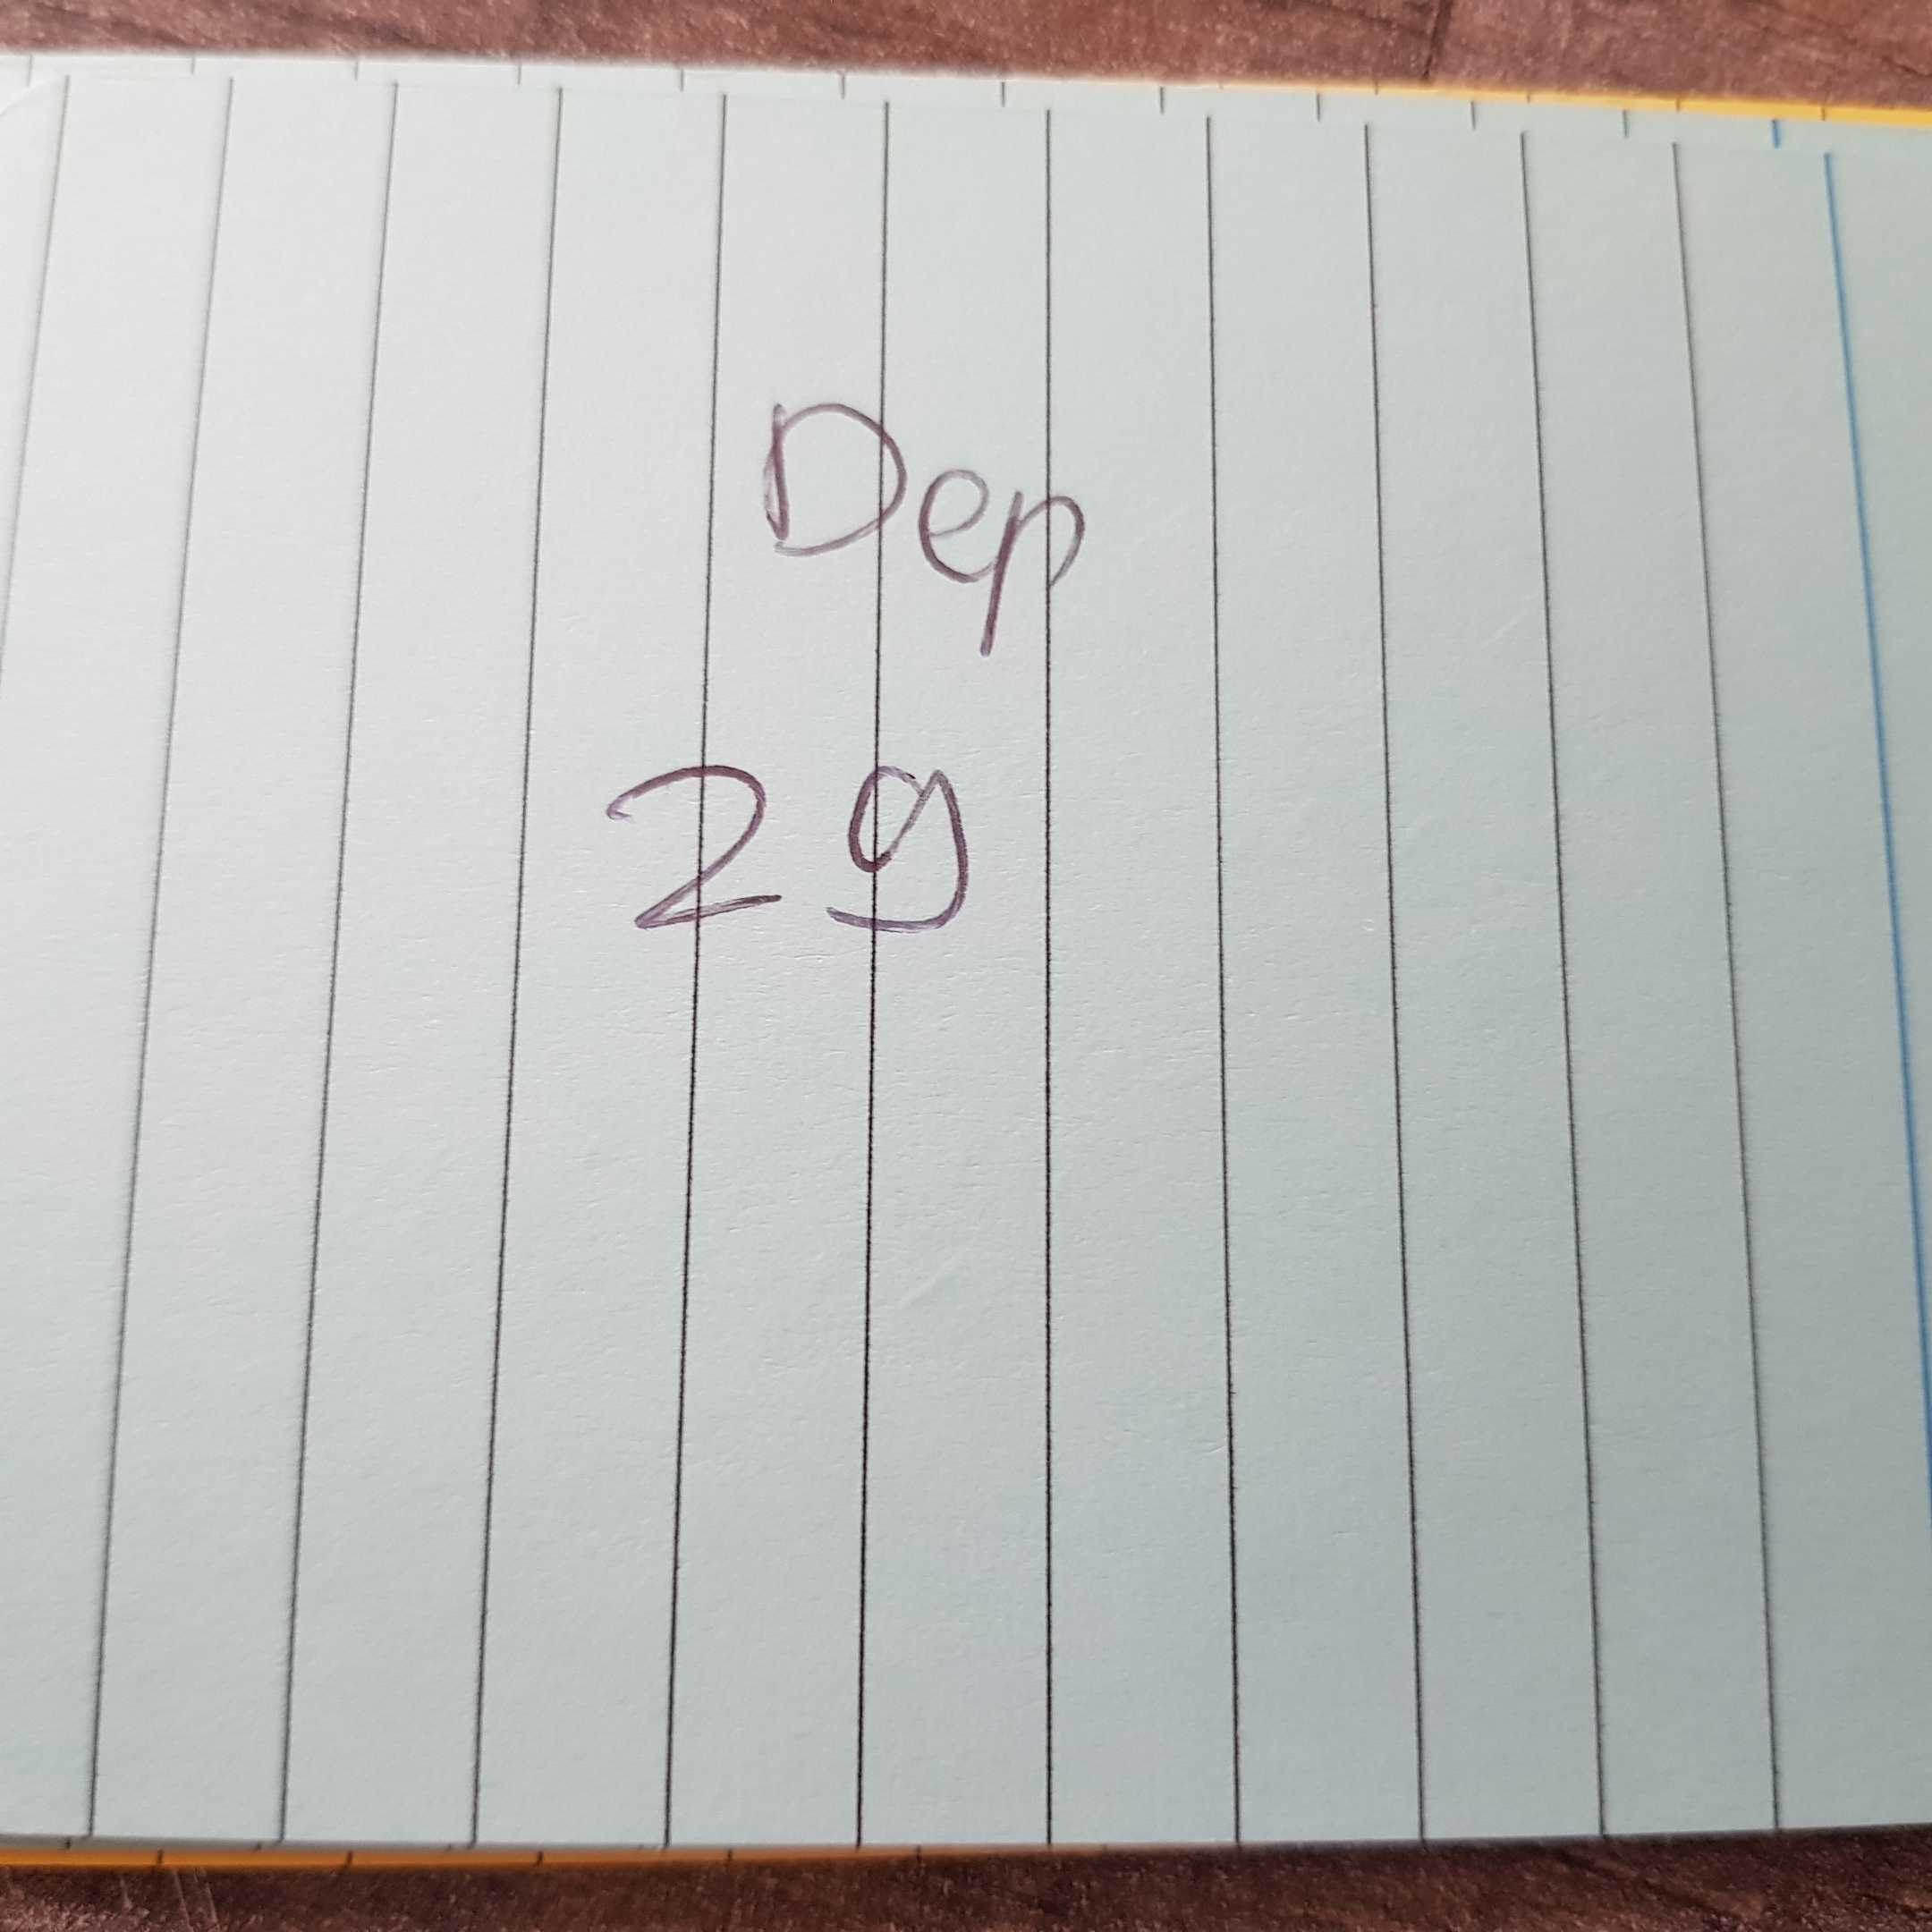 Dep
29